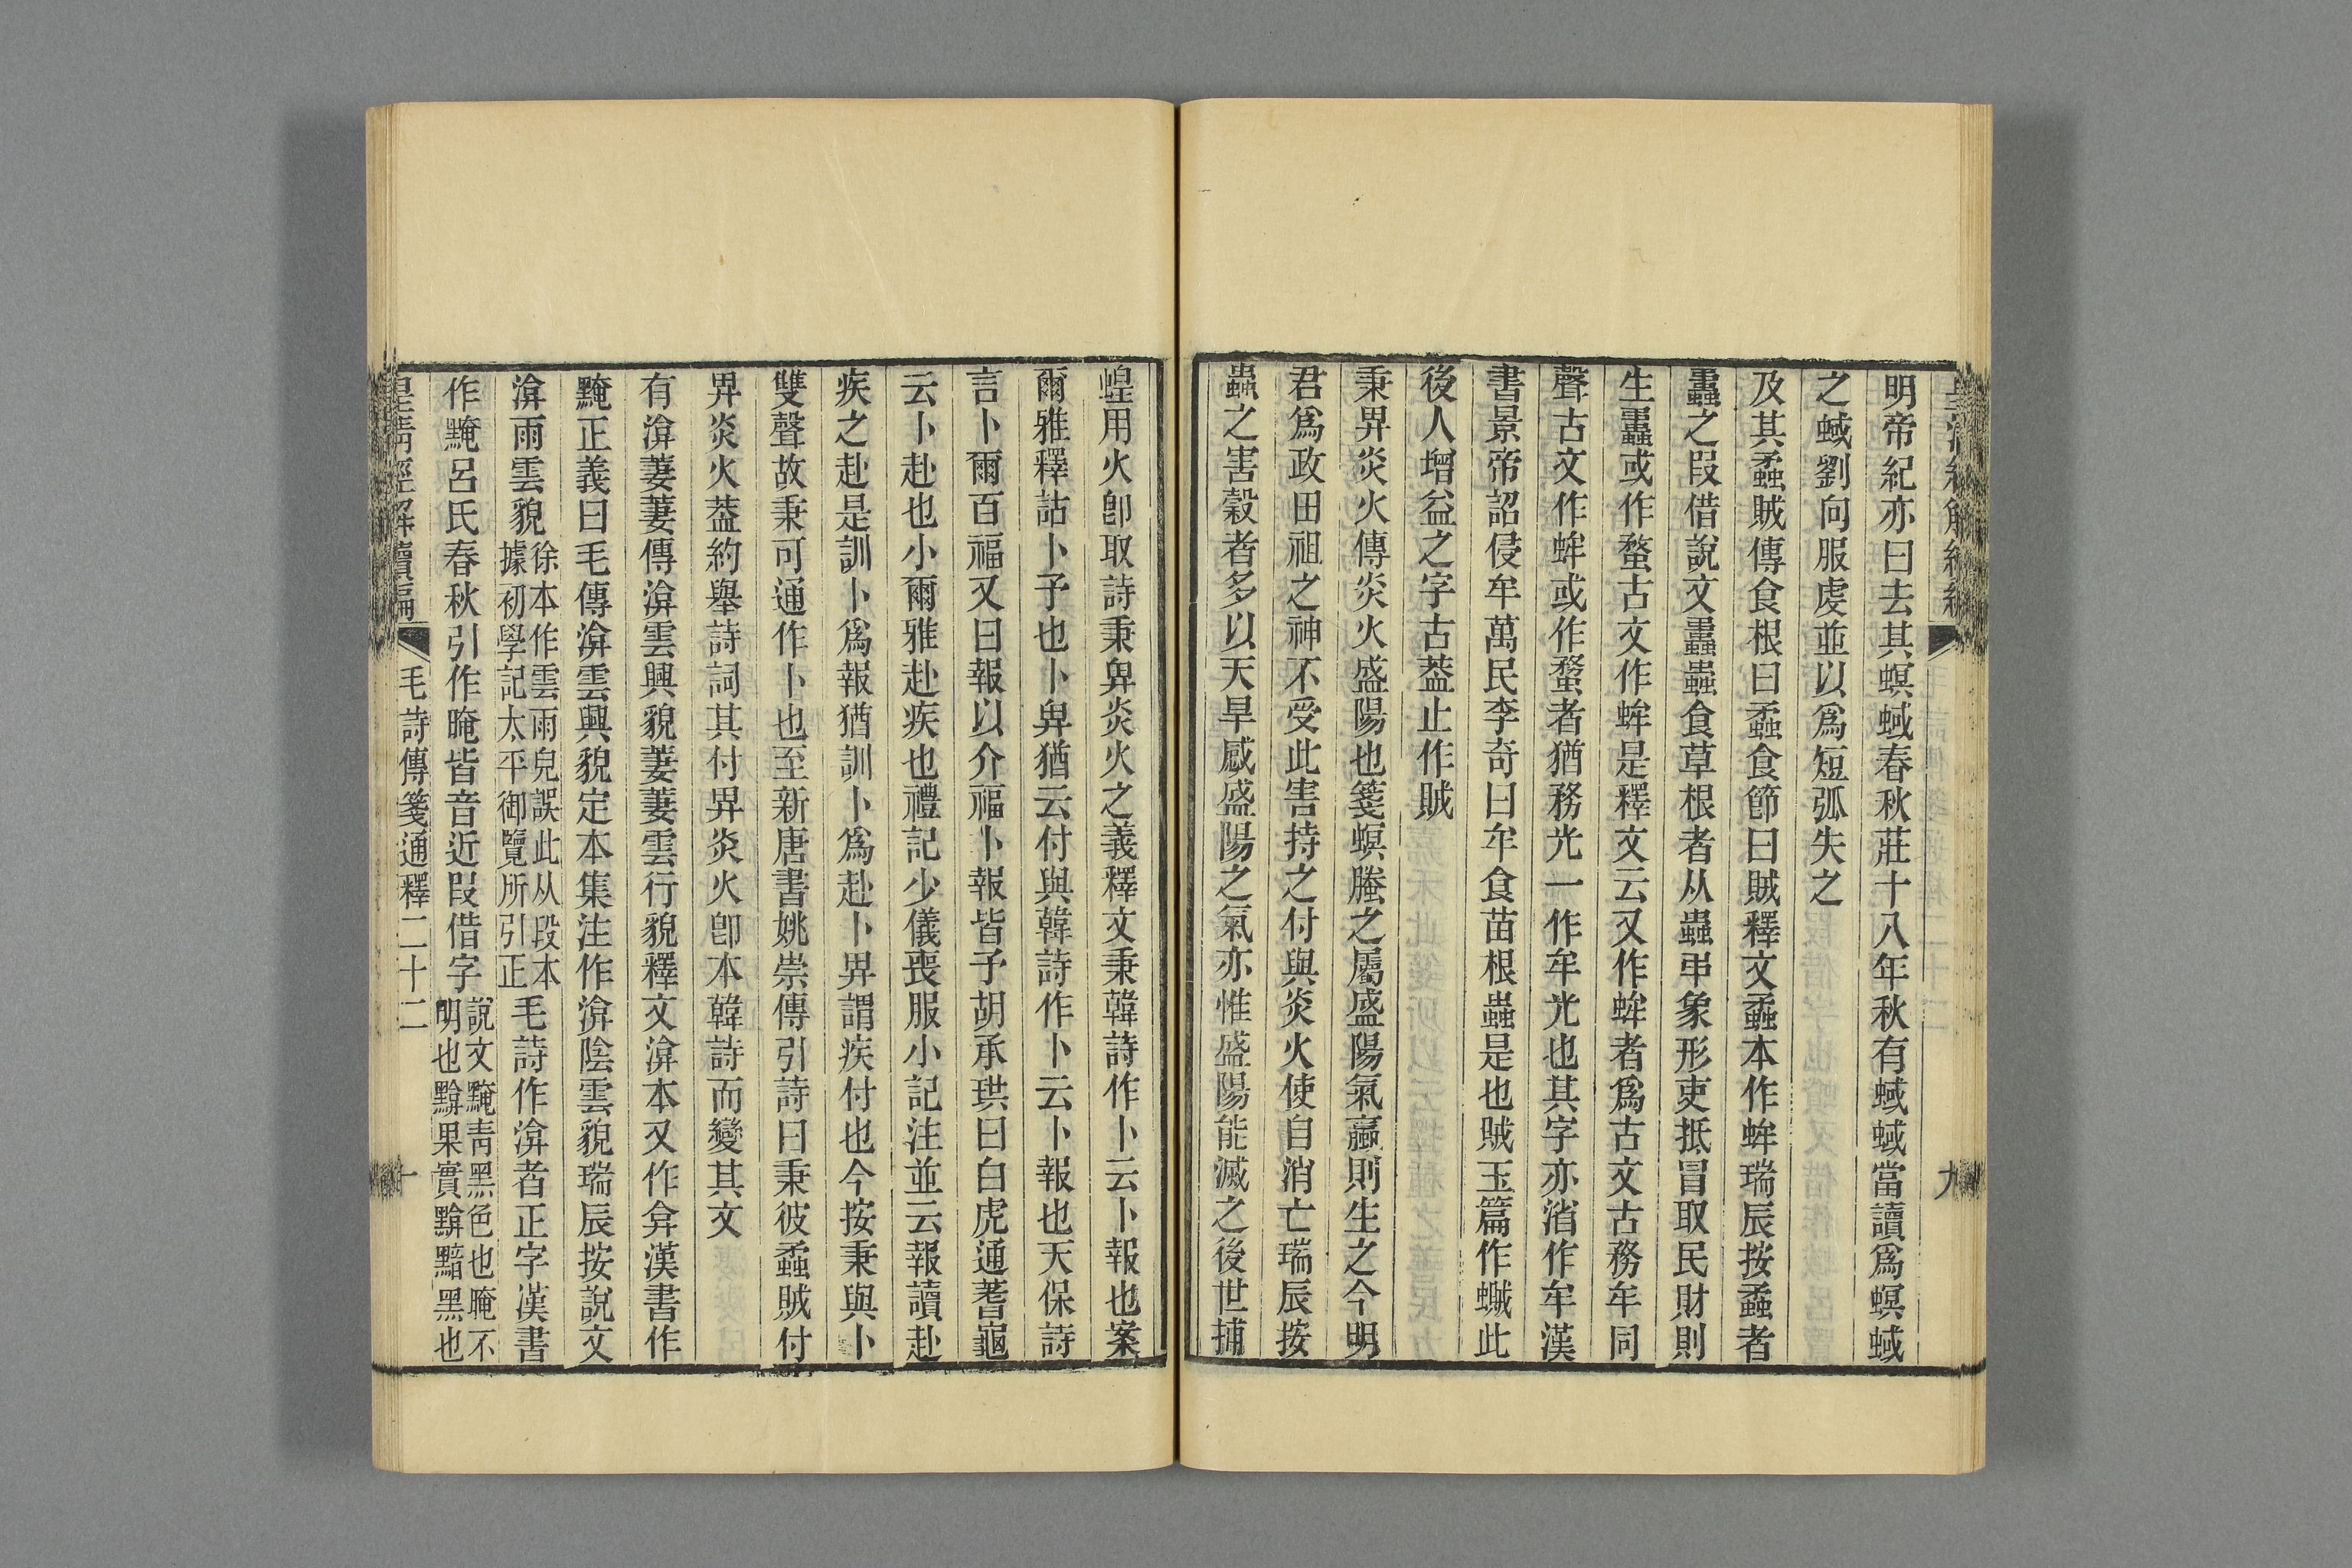 明帝紀亦曰去其螟蜮春秋莊十八年秋有蜮蜮當讀爲螟蜮
之蜮劉向服虔並以爲短弧失之
及其蟊賊傳食根曰蟊食節曰賊釋文蟊本作蛑瑞辰按蟊者
蟲之叚借說文蟲食草根者从蟲象形吏抵冒取民財則
生或作蝥古文作蛑是釋文云又作蛑者爲古文古務牟同
聲古文作蛑或作蝥者猶務光一作牟光也其字亦渻作牟漢
書景帝詔侵牟萬民李奇曰牟食苗根蟲是也賊玉篇作蠈此
後人增益之字古葢止作賊
秉畀炎火傳炎火盛陽也箋螟螣之屬盛陽氣嬴則生之今明
君爲政田祖之神不受此害持之付與炎火使自消亡瑞辰按
蟲之害穀者多以天旱感盛陽之氣亦惟盛陽能滅之後世捕
蝗用火卽取詩秉畀炎火之義釋文秉韓詩作卜云卜報也案
爾雅釋詁卜予也卜畀猶云付與韓詩作卜云卜報也天保詩
言卜爾百福又曰報以介福卜報皆予胡承珙曰白虎通蓍龜
云卜赴也小爾雅赴疾也禮記少儀喪服小記注並云報讀赴
疾之赴是訓卜爲報猶訓卜爲赴卜畀謂疾付也今按秉與卜
雙聲故秉可通作卜也至新唐書姚崇傳引詩曰秉彼蟊賊付
畀炎火葢約舉詩詞其付畀炎火卽本韓詩而變其文
有渰萋萋傳渰雲興貌萋萋雲行貌釋文渰本又作弇漢書作
黤正義曰毛傳渰雲興貌定本集注作渰陰雲貌瑞辰按說文
渰雨雲貌徐本作雲雨皃誤此从段本據初學記太平御覽所引正毛詩作渰者正字漢書
作黤呂氏春秋引作晻皆音近叚借字說文黤青黑色也晻不明也黭果實黭黯黑也
毛詩傳箋通釋二十二